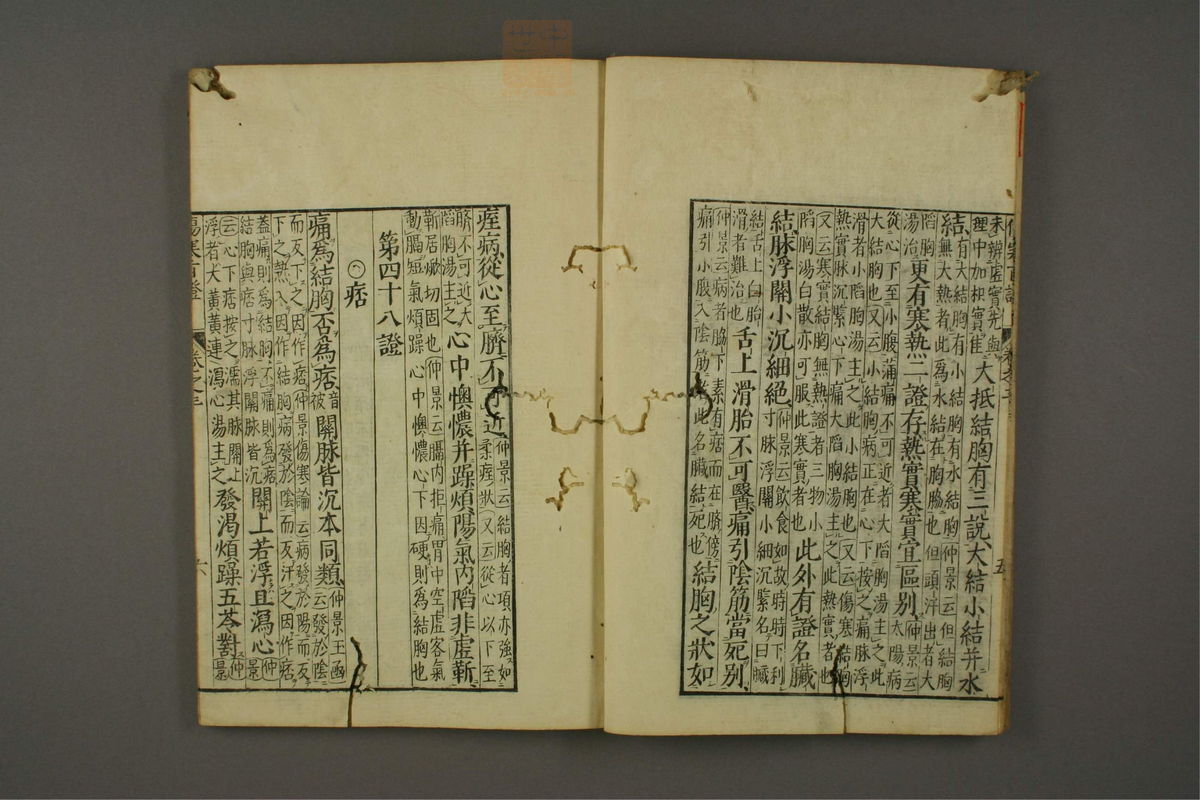 未辨虛實先與
理中加枳實隹
大抵結胸有三說大結小結并水
結有大結胸有小結胸有水結胸仲景云但結胸
無大熱者此為水結在胸脇也但頭汗出者大
陷胸
湯治
更有寒熱二證存熱實寒實宜區別仲景云
太陽病
從心下至小腹滿痛不可近者大陷胸湯主之此
大結胸也又云小結胸病正在心下按之痛脉浮
滑者小陷胸湯主之此小結胸也又云傷寒結胸
熱實脉沉緊心下痛大陷胸湯主之此熱實者也
又云寒實結胸無熱證者三物小
陷胸湯白散亦可服此寒實者也
此外有證名臟
結脉浮關小沉細絕仲景云飲食如故時時下利
寸脉浮關小細沉緊名曰臟
結舌上白胎
滑者難治也
舌上滑胎不可醫痛引陰筋當死別
仲景云病者脇下素有痞而在臍傍
痛引小腹入陰筋者此名臟結死也
結胸之狀如
痓病從心至臍不可近仲景云結胸者項亦強如
柔痓狀又云從心以下至
臍不可近大
陷胸湯主之
心中懊憹并躁煩陽氣內陷非虛靳
靳居焮切固也仲景云膈內拒痛胃中空虛客氣
動膈短氣煩躁心中懊憹心下因硬則為結胸也
第四十八證
痞
痛為結胸否為痞音
被
關脉皆沉本同類仲景玉函
云發於陰
而反下之因作痞仲景傷寒論云病發於陽而反
下之熱入因作結胸病發於陰而反汗之因作痞
蓋痛則為結胸不痛則為痞
結胸與痞寸脉浮關脉皆沉
關上若浮且瀉心仲
景
云心下痞按之濡其脉關上
浮者大黃黃連瀉心湯主之
發渴煩躁五苓對仲
景
傷寒百證
卷之三
五
六